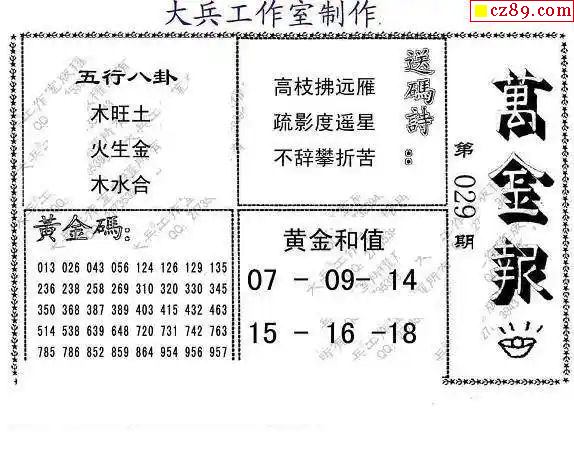 大兵工作室制作
cz89.com
五行八卦
木旺土
火生金
木水合
送碼詩：
高枝拂远雁
疏影度遥星
不辞攀折苦
萬金報
第029期
黃金碼:
013 026 043 056 124 126 129 135
236 238 258 269 310 320 330 345
350 368 387 389 403 415 432 463
514 538 639 648 720 731 742 763
785 786 852 859 864 954 956 957
黄金和值
07 - 09- 14
15 - 16 -18